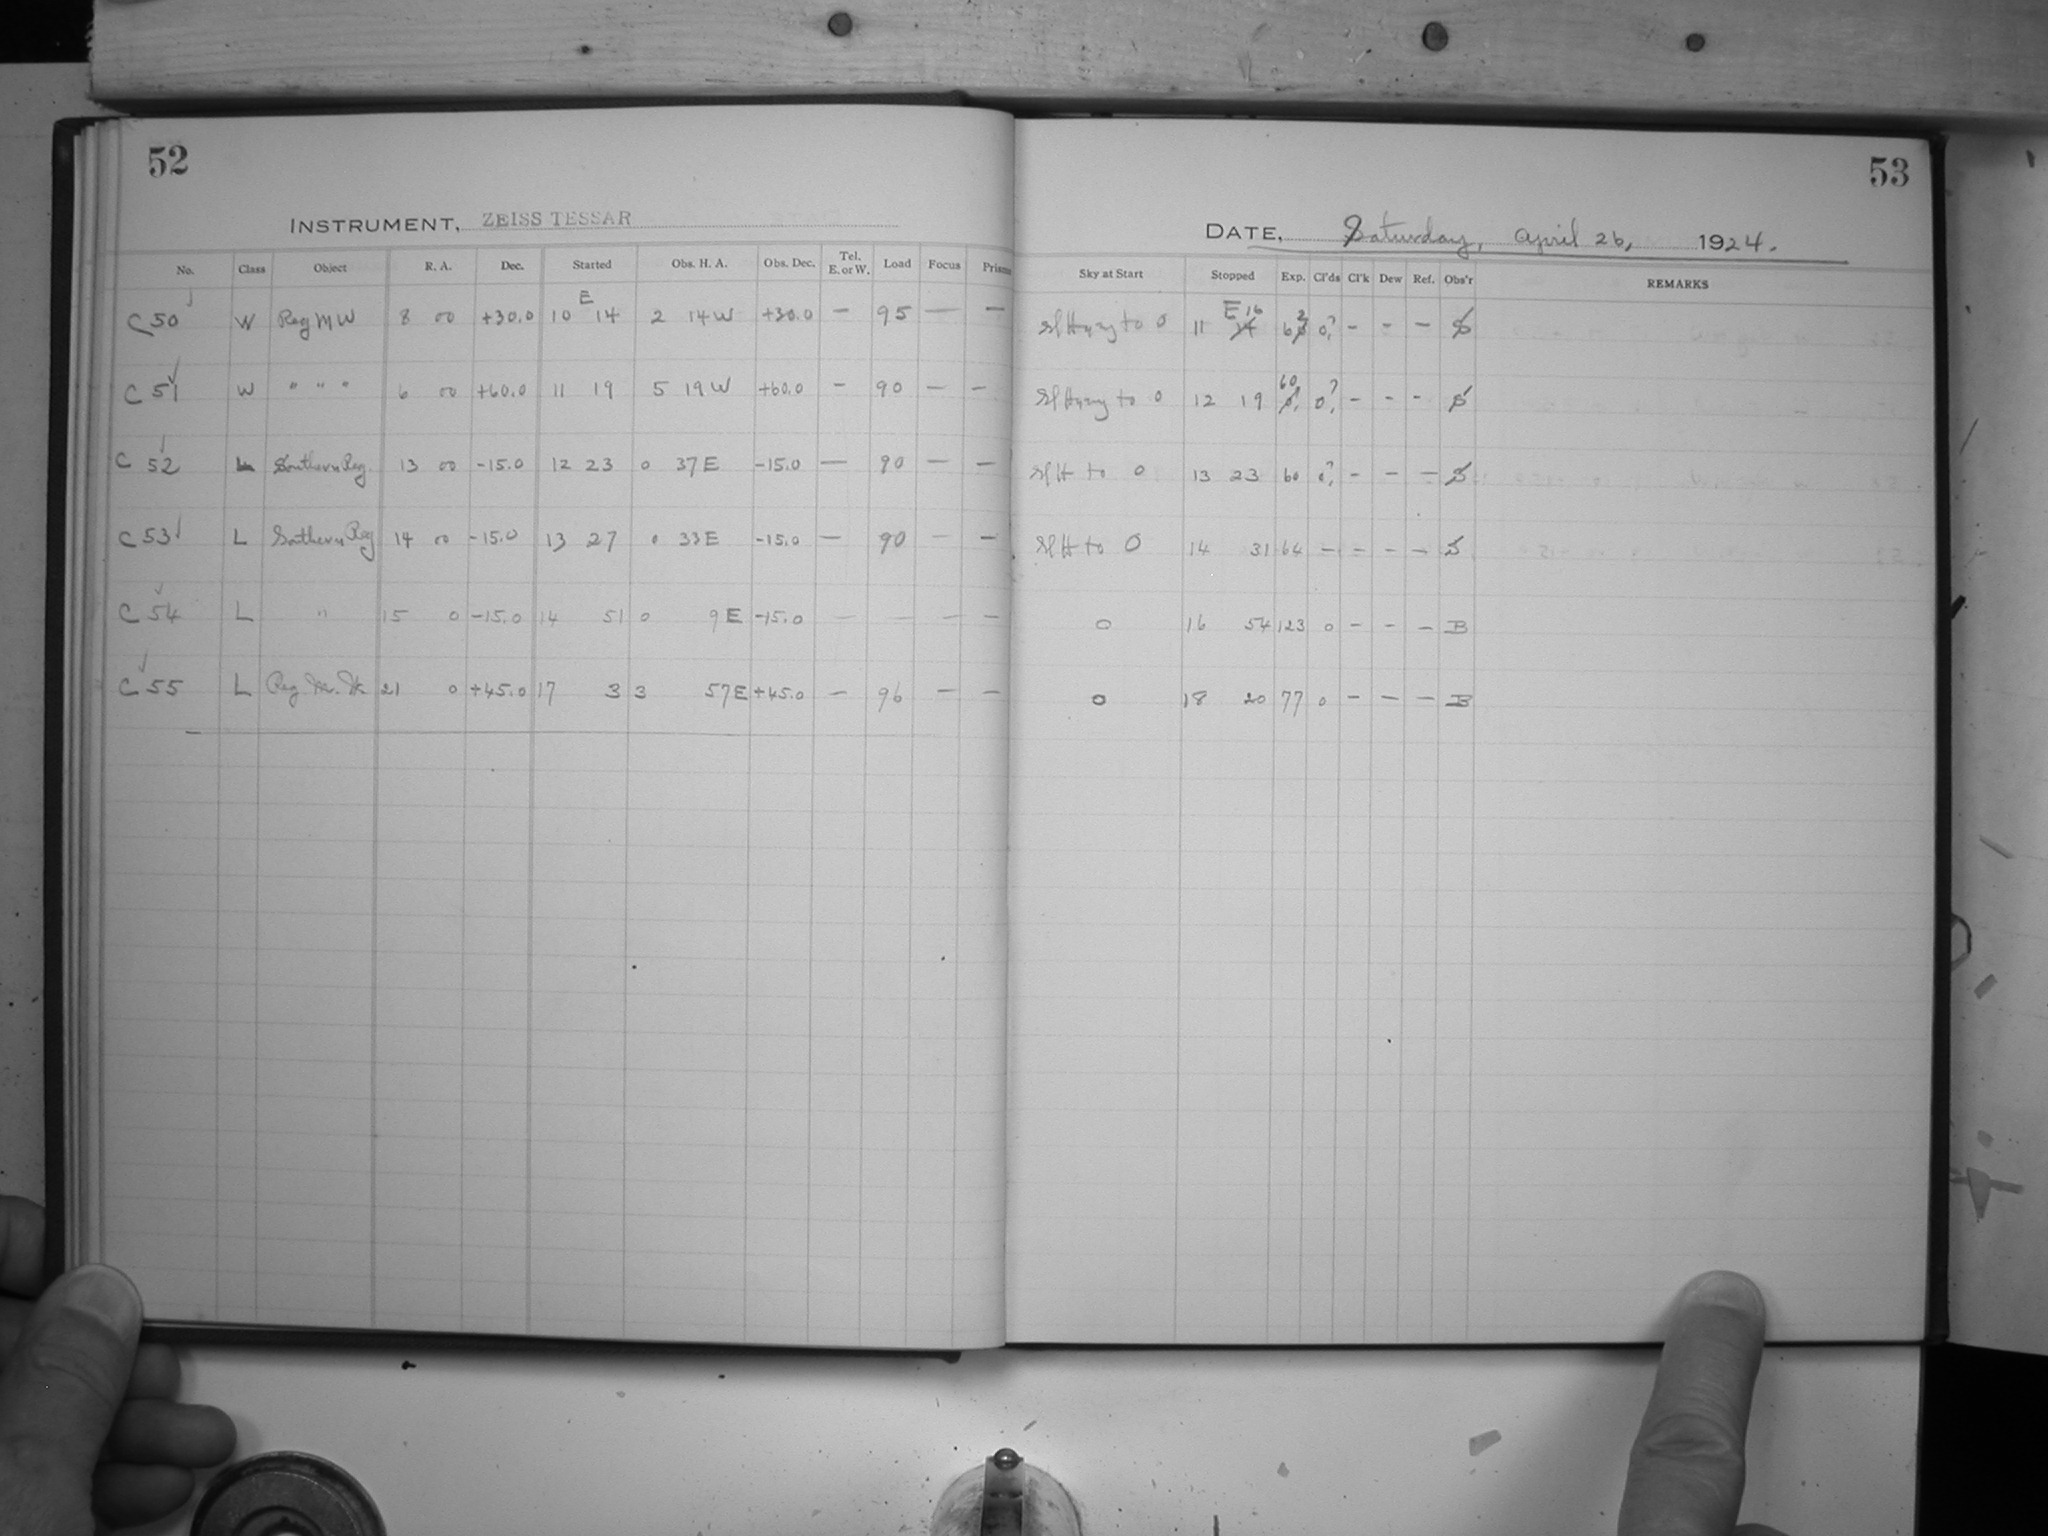 52
INSTRUMENT, ZEISS TESSAR
No. Class Object R. A. Dec. Started Obs. H. A. Obs. Dec. Tel. E. or W. Load Focus Prisms
E
C 50 W Reg M W 8 00 +30.0 10 14 2 14 W +30.0 — 95 — —
C 51 W " " " 6 00 +60.0 11 19 5 19 W +60.0 — 90 — —
C 52 L Southern Reg. 13 00 -15.0 12 23 0 37 E -15.0 — 90 — —
C 53 L Southern Reg 14 00 -15.0 13 27 0 33 E -15.0 — 90 — —
C 54 L " 15 0 -15.0 14 51 0 9 E -15.0 — — — —
C 55 L Reg M. W. 21 0 +45.0 17 3 3 57 E +45.0 — 96 — —
53
DATE, Saturday, April 26, 1924.
Sky at Start Stopped Exp. Cl'ds Cl'k Dew Ref. Obs'r REMARKS
E 16 2
Sl Hazy to 0 11 14 60 0? - - - S
60
Sl Hazy to 0 12 19 0? - - - S
Sl H to 0 13 23 60 0? - - - S
Sl H to 0 14 31 64 - - - - S
0 16 54 123 0 - - - B
0 18 20 77 0 - - - B